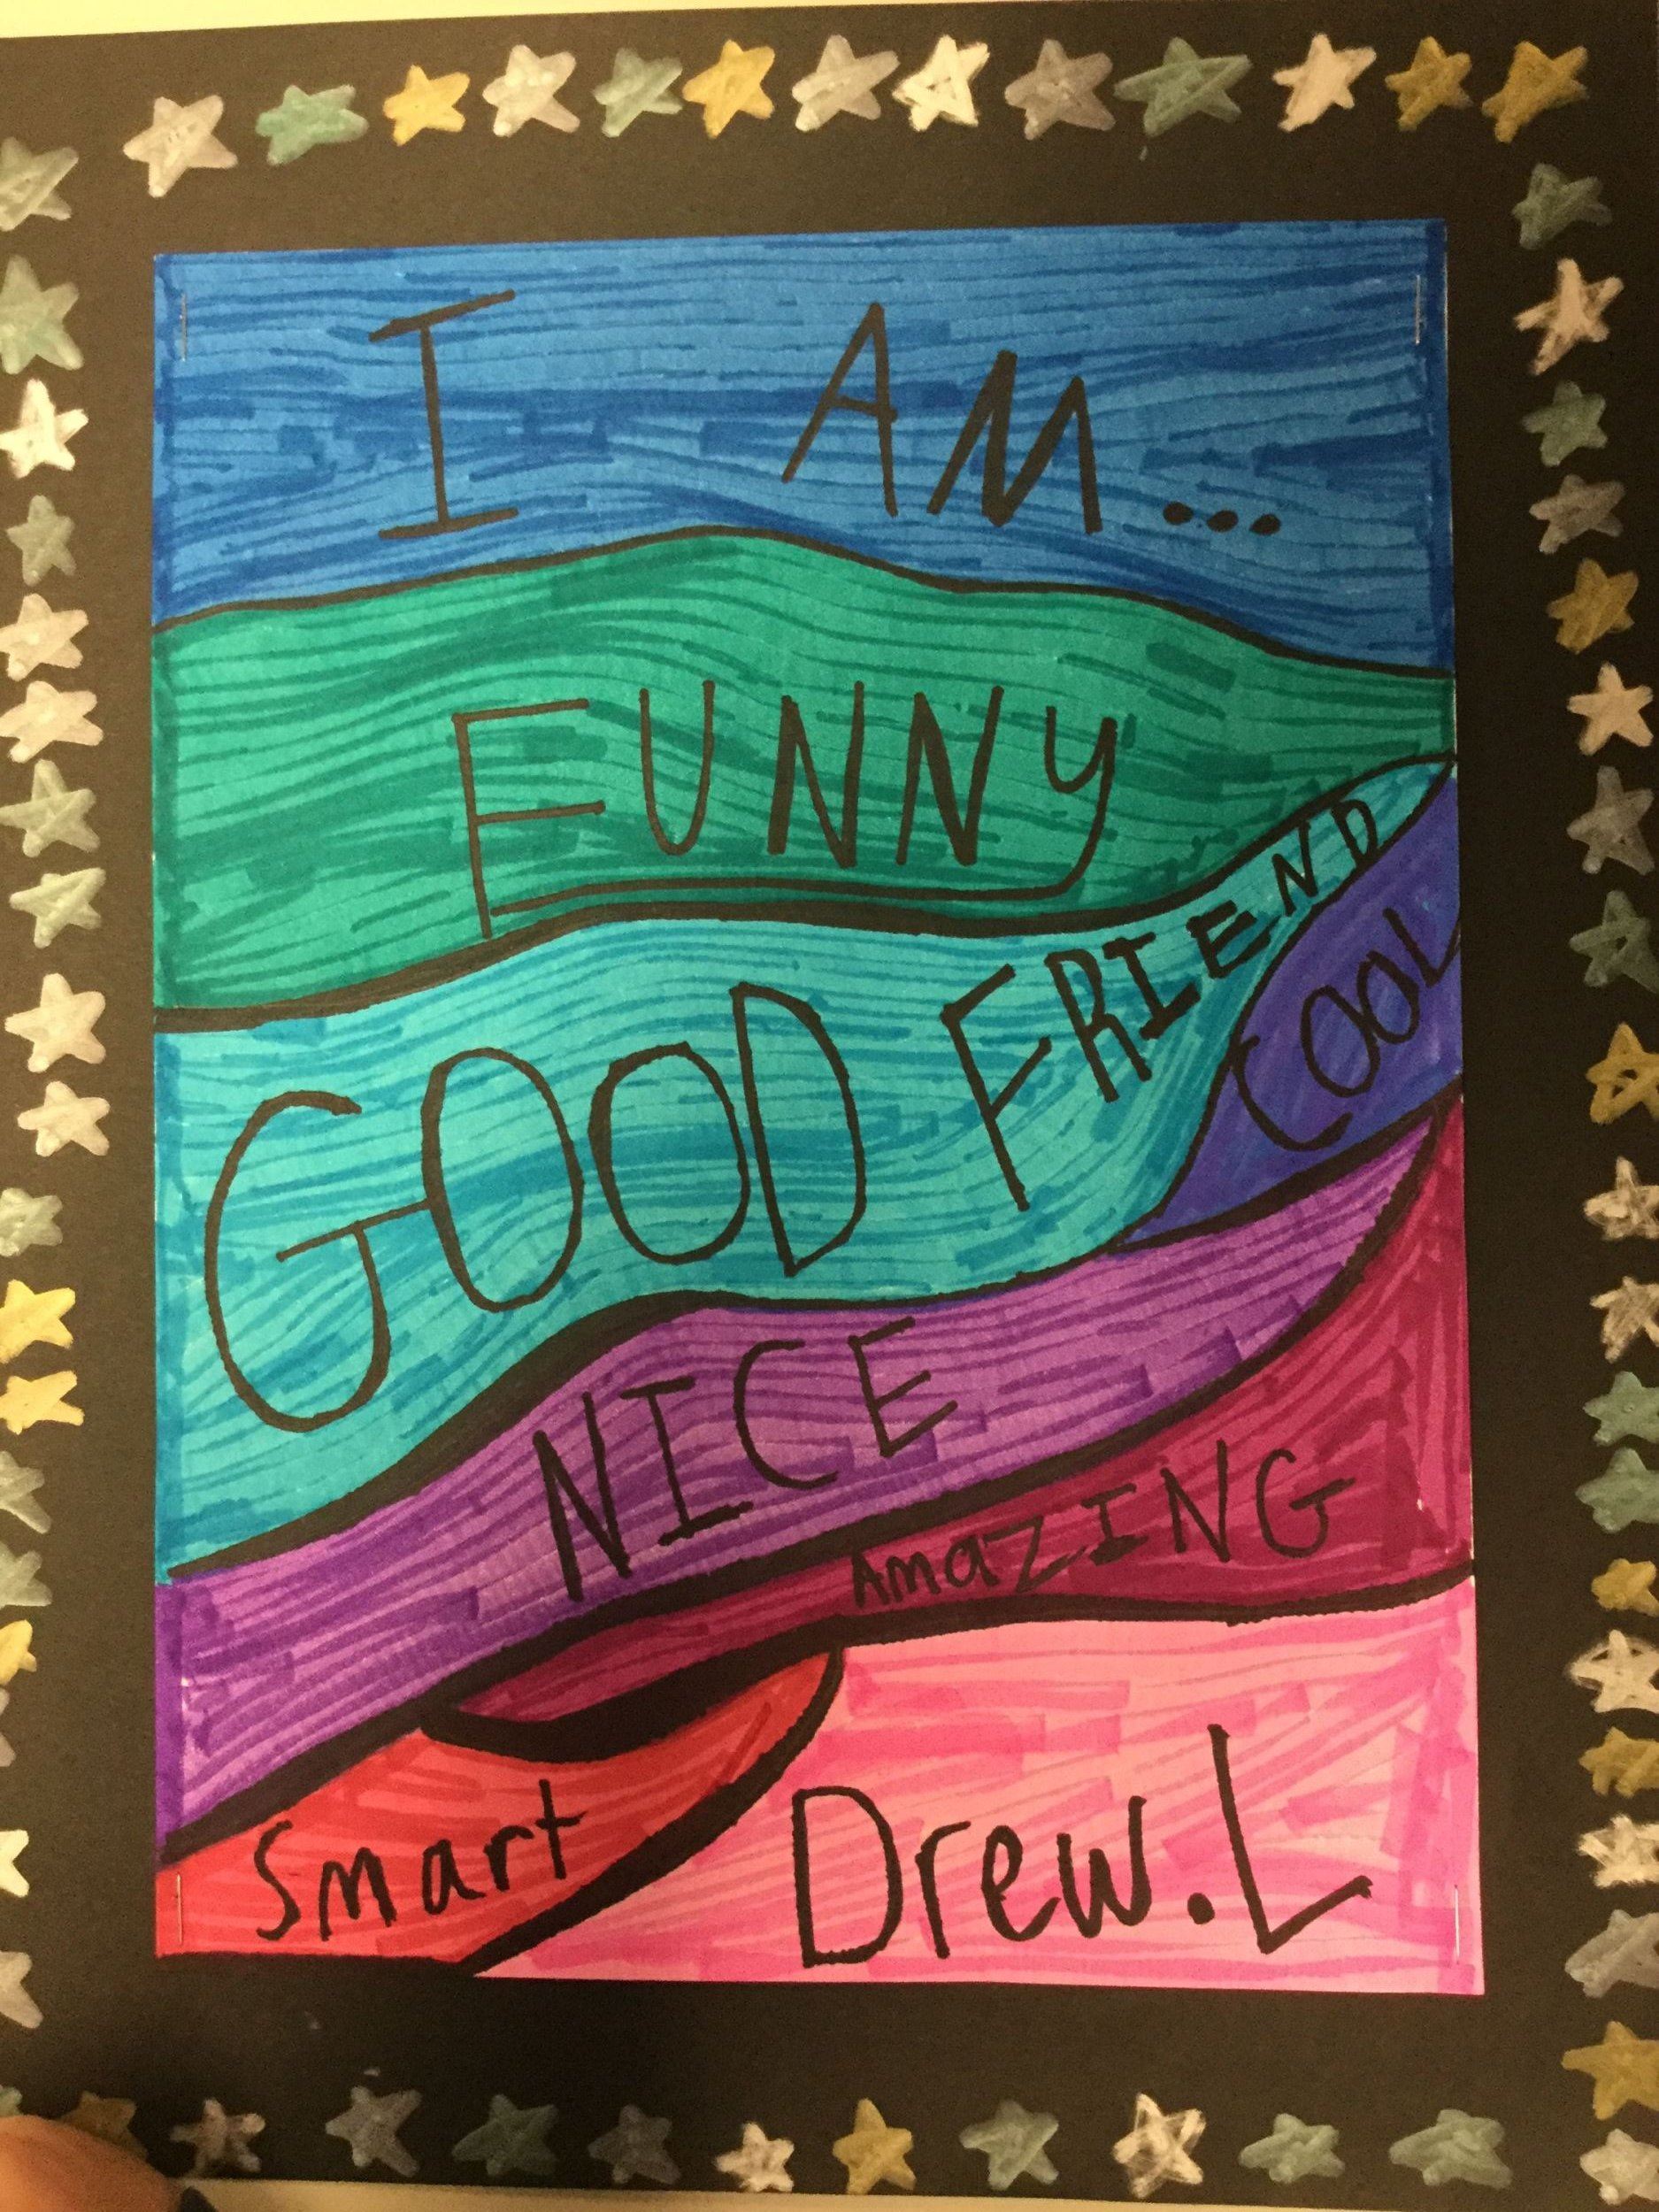 I AM...
FUNNY
GOOD FRIEND
COOL
NICE
AmaZING
Smart
Drew.L